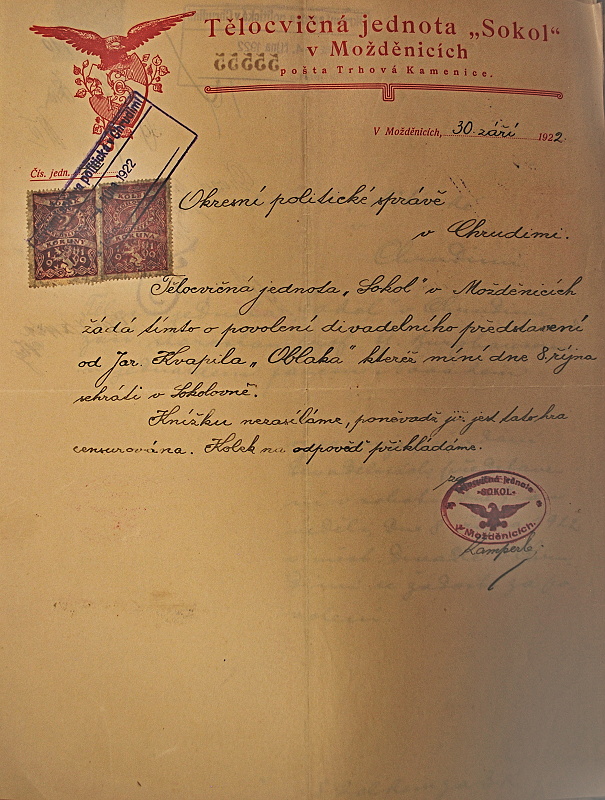 Tělocvičná jednota „Sokol"
v Možděnicích
pošta Trhová Kamenice.
V Možděnicích, 30. září 1922
Čís. jedn.
politická Chrudim
1922
Okresní politické správě
v Chrudimi.
Tělocvičná jednota „Sokol" v Možděnicích
žádá tímto o povolení divadelního představení
od Jar. Kvapila „Oblaka" kteréž míní dne 8. října
sehráti v Sokolovně.
Knížku nezasíláme, poněvadž již jest tato hra
censurována. Kolek na odpověď přikládáme.
Tělocvičná jednota
SOKOL
v Možděnicích.